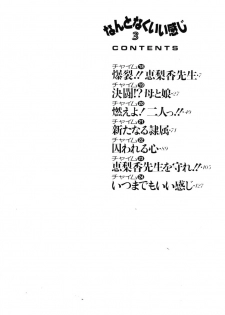 なんとなくいい感じ
3
CONTENTS
チャイム⑱
爆裂!! 恵梨香先生…7
チャイム⑲
決闘!? 母と娘…17
チャイム⑳
燃えよ! 二人っ!!…49
チャイム㉑
新たなる隷属…73
チャイム㉒
囚われる心…89
チャイム㉓
恵梨香先生を守れ!!…105
チャイム㉔
いつまでもいい感じ…127